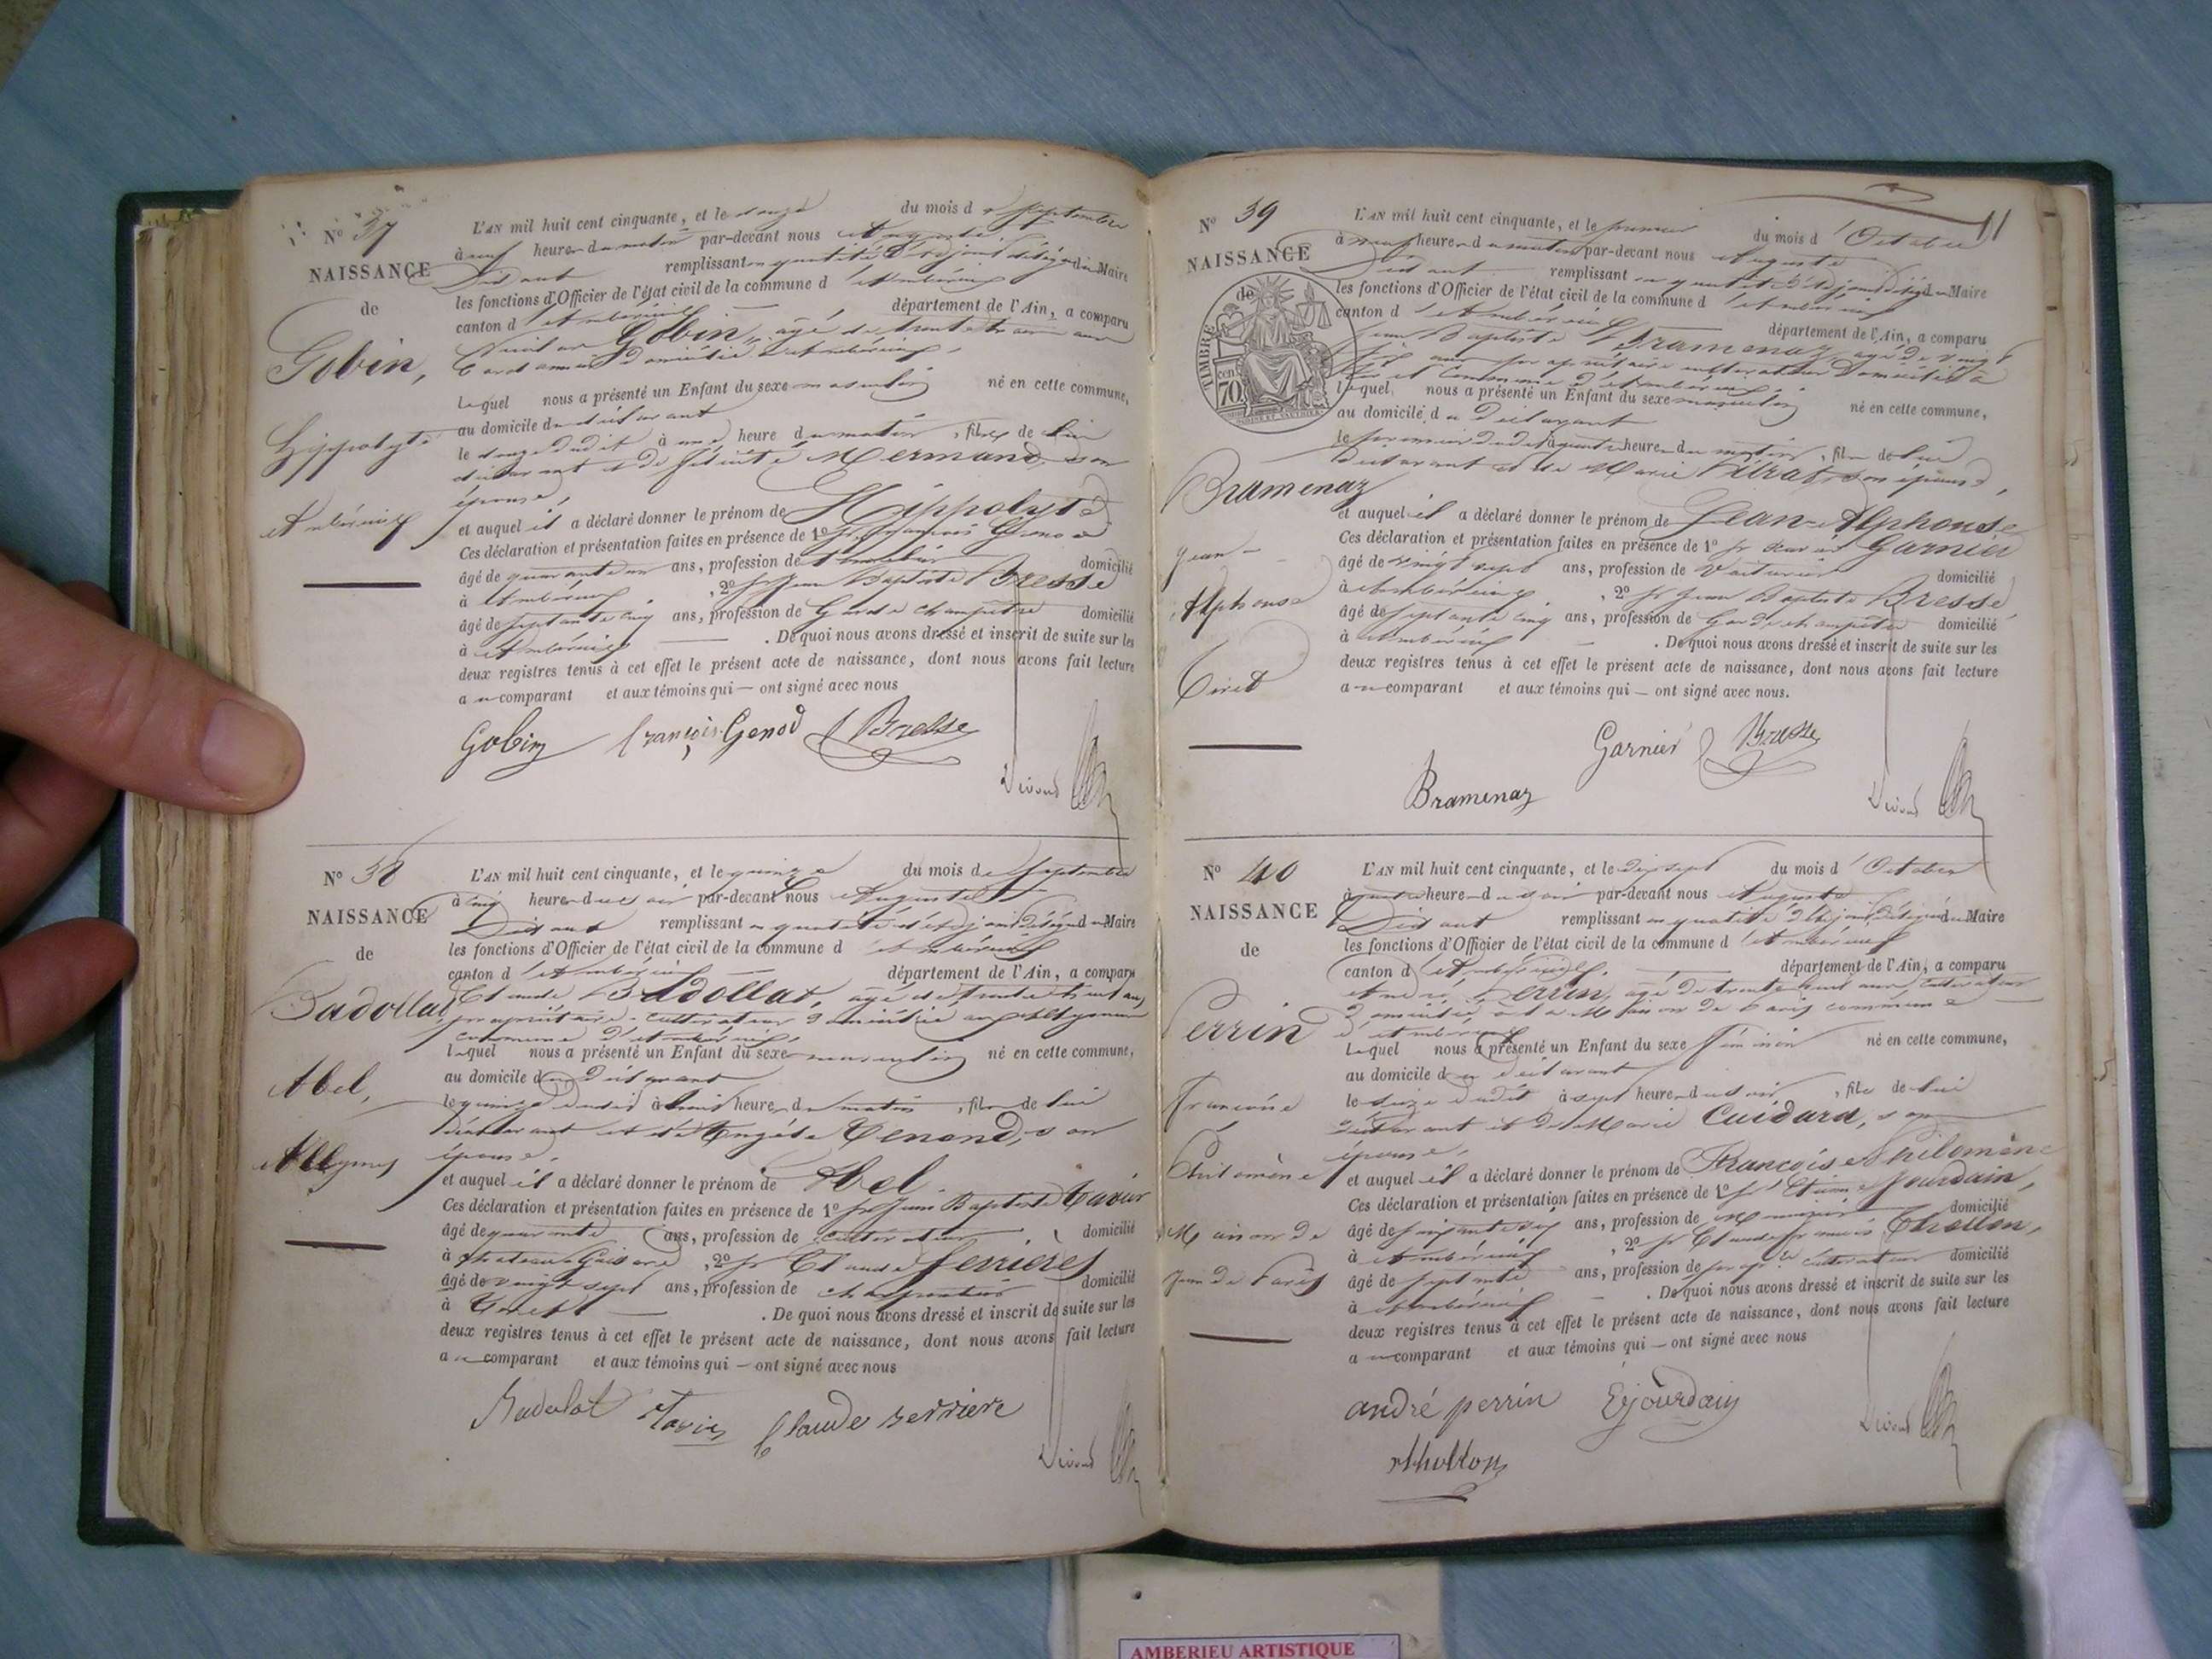 N° 37
NAISSANCE
de
Gobin,
Hippolyte
Ambérieux
L'AN mil huit cent cinquante, et le douze du mois de Septembre
à neuf heures du matin par-devant nous Auguste
remplissant en qualité d'adjoint délégué du Maire
les fonctions d'Officier de l'état civil de la commune d'Ambérieux
canton d'Ambérieux département de l'Ain, a comparu
Gobin, âgé de trente trois ans
domicilié à Ambérieux,
Lequel nous a présenté un Enfant du sexe masculin né en cette commune,
au domicile du déclarant
le douze dudit à une heure du matin, fils de lui
déclarant et de Mermand, son
épouse,
et auquel il a déclaré donner le prénom de Hippolyte
Ces déclaration et présentation faites en présence de 1° sr François Genod
âgé de quarante un ans, profession de domicilié
à Ambérieux, 2° sr Jean Baptiste Bresse
âgé de septante cinq ans, profession de Garde champêtre domicilié
à Ambérieux. De quoi nous avons dressé et inscrit de suite sur les
deux registres tenus à cet effet le présent acte de naissance, dont nous avons fait lecture
au comparant et aux témoins qui ont signé avec nous
Gobin françois Genod Bresse
N° 38
NAISSANCE
de
Badollat
Abel,
Allymes
L'AN mil huit cent cinquante, et le quinze du mois de Septembre
à cinq heures du soir par-devant nous Auguste
remplissant en qualité d'adjoint délégué du Maire
les fonctions d'Officier de l'état civil de la commune d'Ambérieux
canton d'Ambérieux département de l'Ain, a comparu
Claude Badollat, âgé de trente huit ans
propriétaire-cultivateur domicilié aux Allymes
commune d'Ambérieux,
Lequel nous a présenté un Enfant du sexe masculin né en cette commune,
au domicile du déclarant
le quinze dudit à trois heures du matin, fils de lui
déclarant et de Angèle Tenand, son
épouse.
et auquel il a déclaré donner le prénom de Abel.
Ces déclaration et présentation faites en présence de 1° sr Jean Baptiste Tavier
âgé de quarante ans, profession de cultivateur domicilié
à Chateau Gaillard, 2° sr Claude ferrières
âgé de vingt sept ans, profession de charpentier domicilié
à. De quoi nous avons dressé et inscrit de suite sur les
deux registres tenus à cet effet le présent acte de naissance, dont nous avons fait lecture
au comparant et aux témoins qui ont signé avec nous
Badolat Tavier Claude ferriere
11
N° 39
NAISSANCE
de
TIMBRE
70 cen
Bramenaz
Jean-
Alphonse
Tiret
L'AN mil huit cent cinquante, et le premier du mois d'Octobre
à neuf heures du matin par-devant nous Auguste
remplissant en qualité d'adjoint délégué du Maire
les fonctions d'Officier de l'état civil de la commune d'Ambérieux
canton d'Ambérieux département de l'Ain, a comparu
Jean Baptiste Bramenaz, âgé de vingt
six ans propriétaire cultivateur domicilié à
Tiret commune d'Ambérieux
Lequel nous a présenté un Enfant du sexe masculin né en cette commune,
au domicile du Déclarant
le premier dudit à quatre heures du matin, fils de lui
Déclarant et de Marie, son épouse,
et auquel il a déclaré donner le prénom de Jean-Alphonse
Ces déclaration et présentation faites en présence de 1° sr Garnier
âgé de vingt sept ans, profession de Voiturier domicilié
à Ambérieux, 2° sr Jean Baptiste Bresse,
âgé de septante cinq ans, profession de Garde champêtre domicilié
à Ambérieux. De quoi nous avons dressé et inscrit de suite sur les
deux registres tenus à cet effet le présent acte de naissance, dont nous avons fait lecture
au comparant et aux témoins qui ont signé avec nous.
Garnier Bresse
Bramenaz
N° 40
NAISSANCE
de
Perrin
Françoise
Philomène
Maison de
Jean de Paris
L'AN mil huit cent cinquante, et le dix sept du mois d'Octobre
à quatre heures du soir par-devant nous Auguste
remplissant en qualité d'adjoint délégué du Maire
les fonctions d'Officier de l'état civil de la commune d'Ambérieux
canton d'Ambérieux. département de l'Ain, a comparu
André Perrin, âgé de trente neuf ans cultivateur
domicilié à la Maison de Paris commune
d'Ambérieux
Lequel nous a présenté un Enfant du sexe féminin né en cette commune,
au domicile du déclarant
le seize dudit à sept heures du soir, fille de lui
déclarant et de Marie Cuidard, son
épouse.
et auquel il a déclaré donner le prénom de Françoise Philomène
Ces déclaration et présentation faites en présence de 1° sr Etienne Jourdain,
âgé de ans, profession de domicilié
à Ambérieux, 2° sr Claude françois Chollon,
âgé de septante ans, profession de cultivateur domicilié
à Ambérieux. De quoi nous avons dressé et inscrit de suite sur les
deux registres tenus à cet effet le présent acte de naissance, dont nous avons fait lecture
au comparant et aux témoins qui ont signé avec nous
andré perrin Ejourdain
AMBERIEU ARTISTIQUE